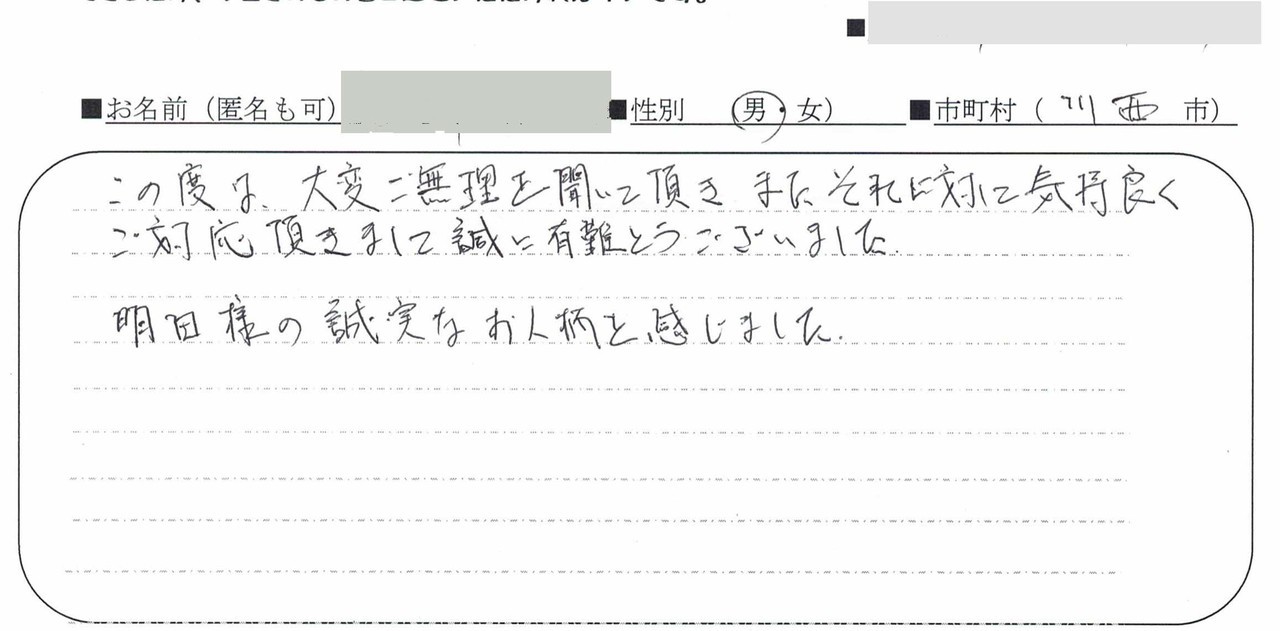 ■お名前（匿名も可）
■性別　（男・女）
■市町村（川西市）
この度は、大変ご無理を聞いて頂き またそれに対して気持良く
ご対応頂きまして誠に有難とうございました.
明田様の誠実なお人柄を感じました.